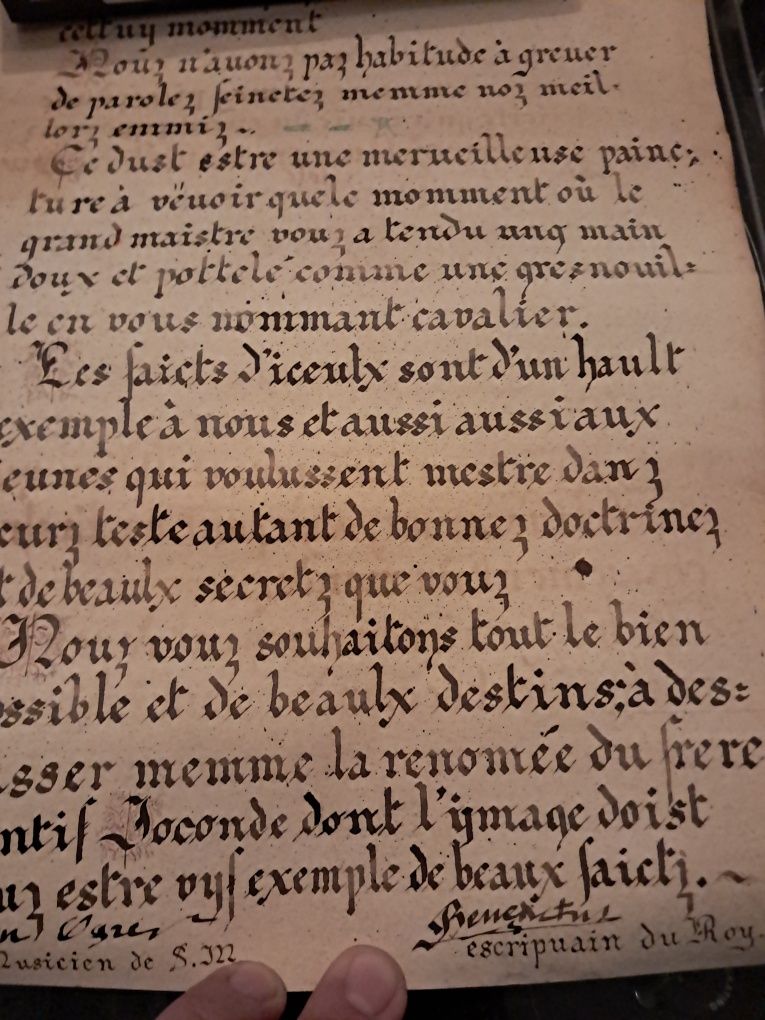 cettuy momment
Nouz n'avonz paz habitude à grever
de parolez feinctez memme noz meil-
lorz emmiz~.
Ce dust estre une merveilleuse painc-
ture à vëuoir quele momment où le
grand maistre vouz a tendu ung main
doux et pottelé comme une gresnouil=
le en vous nommant cavalier.
Les faicts d'iceulx sont d'un hault
exemple à nous et aussi aussi aux
jeunes qui voulussent mestre danz
eurz teste autant de bonnez doctrinez
t de beaulx secretz que vouz
Nouz vouz souhaitons tout le bien
ossible et de beaulx destins; à des=
asser memme la renomée du frere
ntif Joconde dont l'ymage doist
uz estre vyf exemple de beaux faictz. ~
Benedictus
Musicien de S.M
escripuain du Roy.